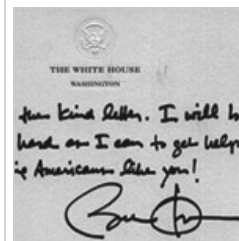 THE WHITE HOUSE
WASHINGTON
kind letter. I will
hard as I can to get help
Americans like you!